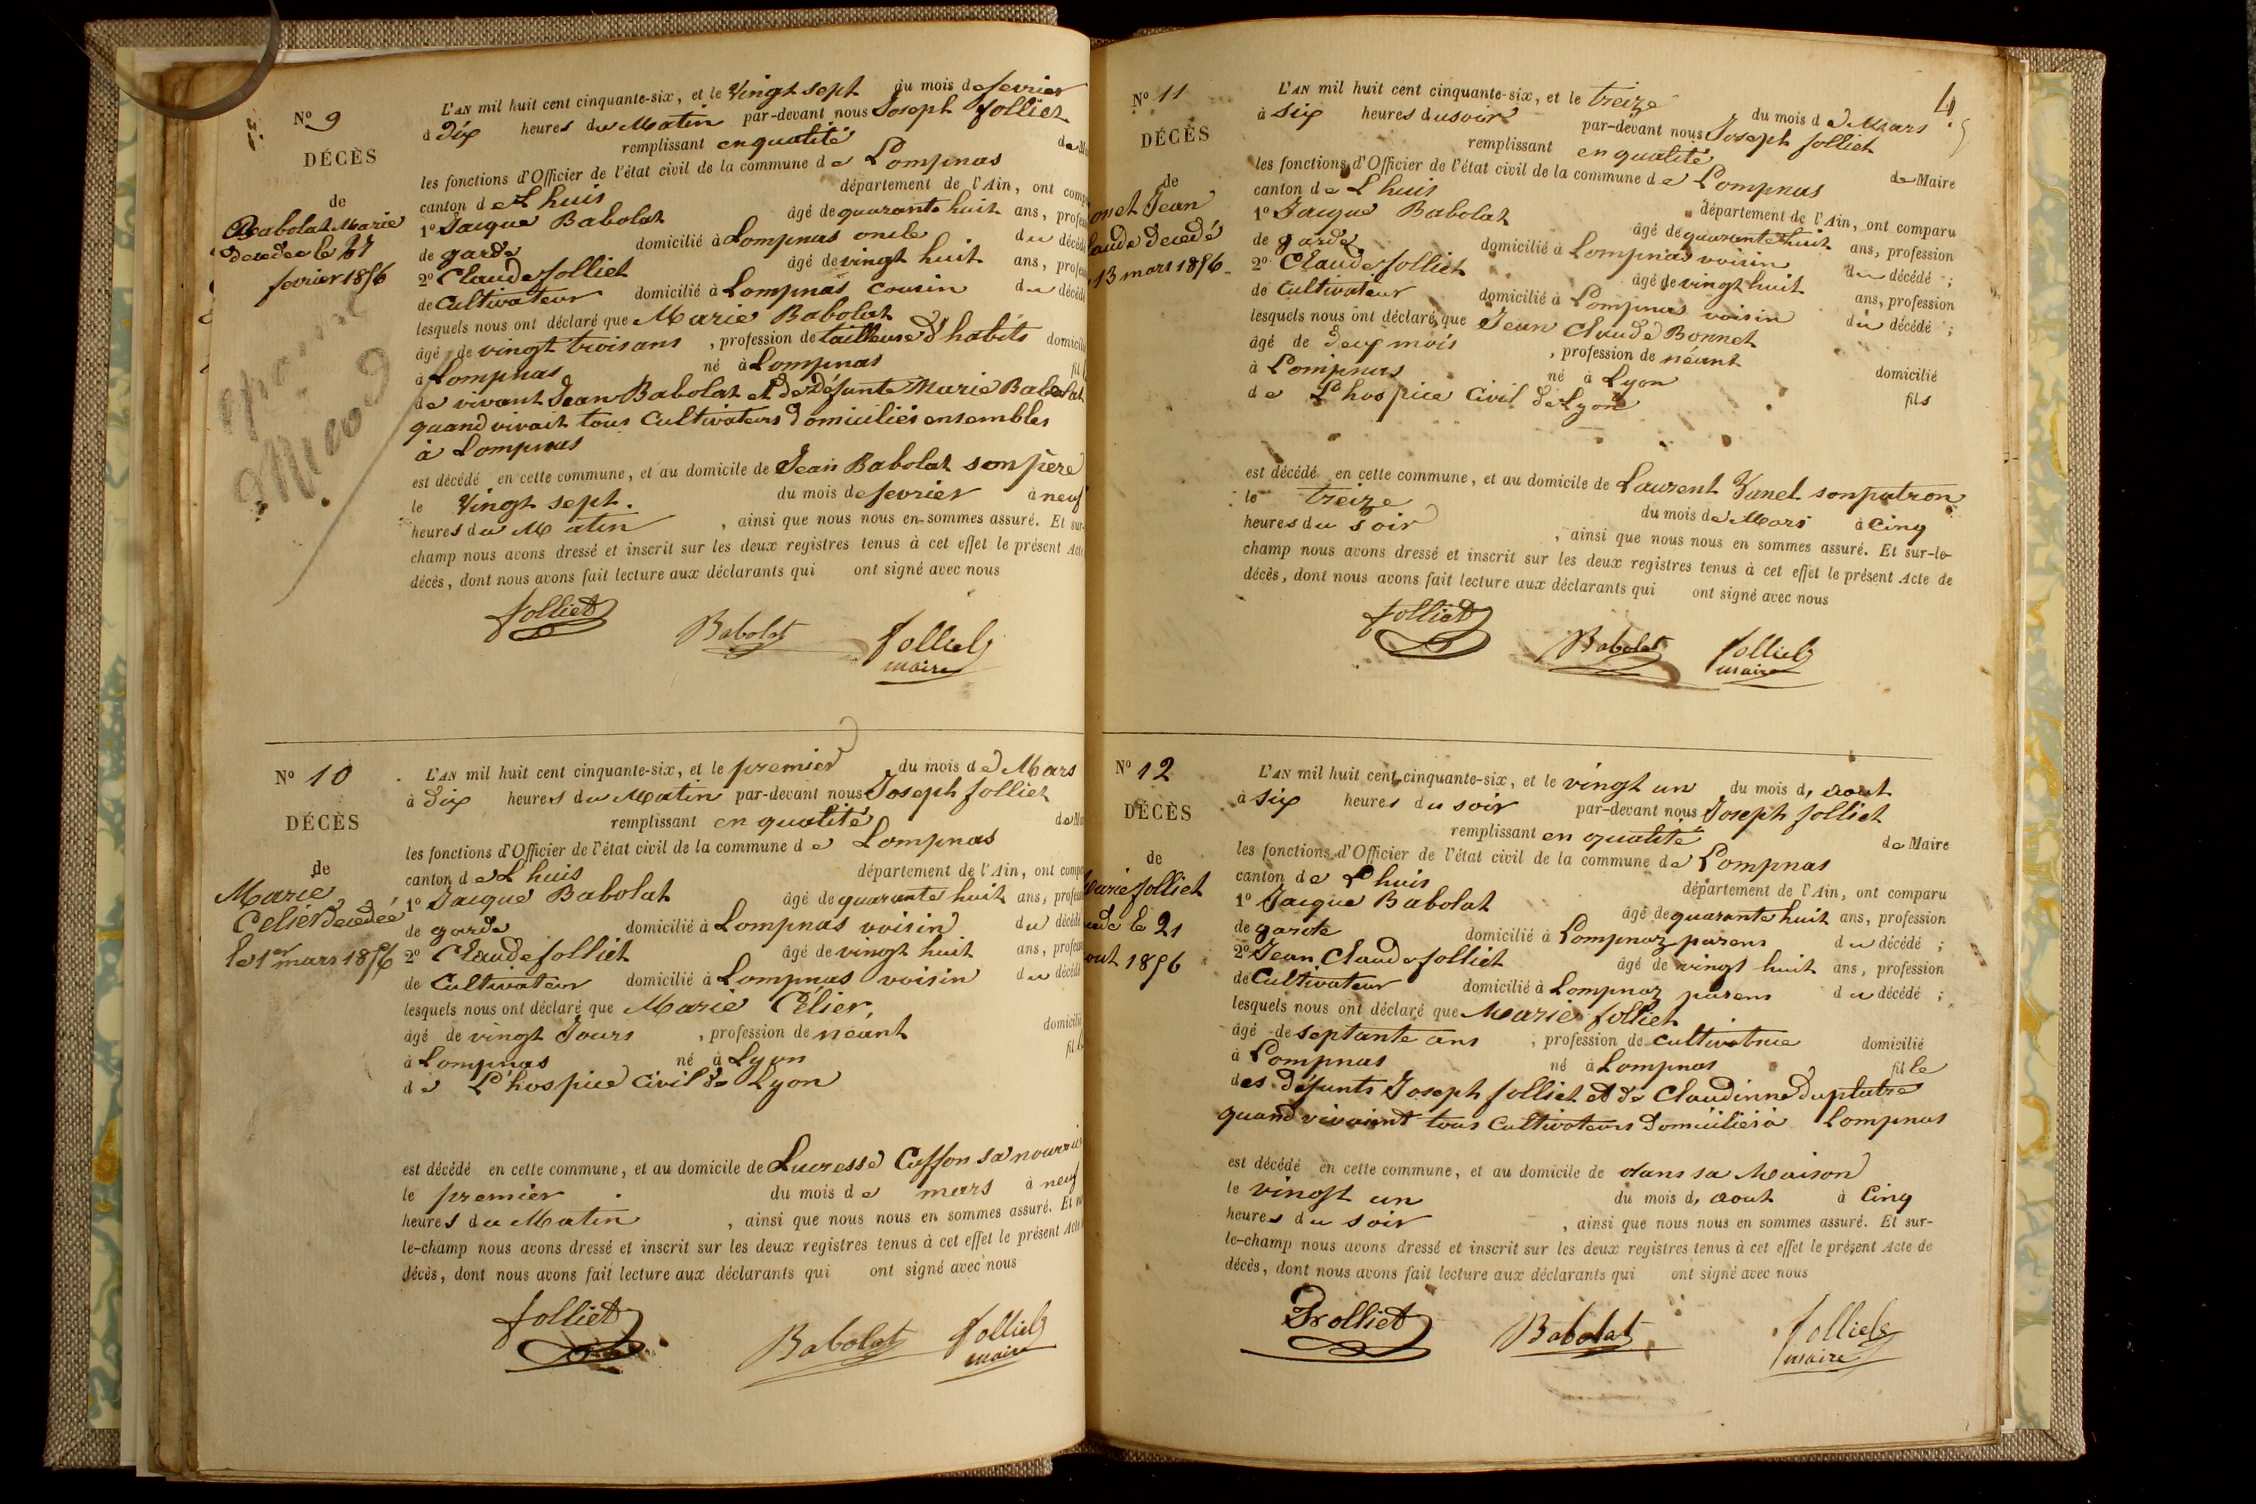 Nº 9
DÉCÈS
de
Babolat Marie
décedée le 27
fevrier 1856
L'AN mil huit cent cinquante-six, et le Vingt sept du mois de fevrier
à dix heures du Matin par-devant nous Joseph Jolliet
remplissant en qualité de
les fonctions d'Officier de l'état civil de la commune de Lompnas
canton de Lhuis département de l'Ain, ont
1º Jacque Babolat âgé de quarante huit ans,
de garde domicilié à Lompnas oncle du
2º Claude Jolliet âgé de vingt huit ans,
de Cultivateur domicilié à Lompnas cousin du
lesquels nous ont déclaré que Marie Babolat
âgé de vingt trois ans, profession de tailleuse d'habits
à Lompnas né à Lompnas
de vivant Jean Babolat et de défunte Marie Babolat
quand vivait tous Cultivateurs domiciliés ensembles
à Lompnas
est décédé en cette commune, et au domicile de Jean Babolat son père
le Vingt sept. du mois de fevrier à neuf
heures du Matin, ainsi que nous nous en sommes assuré. Et sur-
champ nous avons dressé et inscrit sur les deux registres tenus à cet effet le présent Acte
décès, dont nous avons fait lecture aux déclarants qui ont signé avec nous
Jolliet Babolat Jolliet
maire
Nº 10
DÉCÈS
de
Marie
Celier décedée
le 1er mars 1856
L'AN mil huit cent cinquante-six, et le premier du mois de Mars
à dix heures du Matin par-devant nous Joseph Jolliet
remplissant en qualité de
les fonctions d'Officier de l'état civil de la commune de Lompnas
canton de Lhuis département de l'Ain, ont
1º Jacque Babolat âgé de quarante huit ans,
de garde domicilié à Lompnas voisin du
2º Claude Jolliet âgé de vingt huit ans,
de Cultivateur domicilié à Lompnas voisin du
lesquels nous ont déclaré que Marie Célier,
âgé de vingt Jours, profession de néant
à Lompnas né à Lyon
de L'hospice Civil de Lyon
est décédé en cette commune, et au domicile de Lucresse Cuffon sa
le premier du mois de mars à neuf
heures du Matin, ainsi que nous nous en sommes assuré. Et
le-champ nous avons dressé et inscrit sur les deux registres tenus à cet effet le présent Acte
décès, dont nous avons fait lecture aux déclarants qui ont signé avec nous
Jolliet Babolat Jolliet
maire
4.
Nº 11
DÉCÈS
de
onet Jean
laude decedé
13 mars 1856
L'AN mil huit cent cinquante-six, et le treize du mois de Mars
à six heures du soir par-devant nous Joseph Jolliet
remplissant en qualité de Maire
les fonctions d'Officier de l'état civil de la commune de Lompnas
canton de Lhuis département de l'Ain, ont comparu
1º Jacque Babolat âgé de quarante huit ans, profession
de garde domicilié à Lompnas voisin du décédé ;
2º Claude Jolliet âgé de vingt huit ans, profession
de Cultivateur domicilié à Lompnas voisin du décédé ;
lesquels nous ont déclaré que Jean Claude Bonnet
âgé de deux mois, profession de néant domicilié
à Lompnas né à Lyon fils
de L'hospice Civil de Lyon
est décédé en cette commune, et au domicile de Laurent Vanel son patron
le treize du mois de Mars à Cinq
heures du soir, ainsi que nous nous en sommes assuré. Et sur-le-
champ nous avons dressé et inscrit sur les deux registres tenus à cet effet le présent Acte de
décès, dont nous avons fait lecture aux déclarants qui ont signé avec nous
Jolliet Babolat Jolliet
maire
Nº 12
DÉCÈS
de
Marie Jolliet
le 21
out 1856
L'AN mil huit cent cinquante-six, et le vingt un du mois d, aout
à six heures du soir par-devant nous Joseph Jolliet
remplissant en qualité de Maire
les fonctions d'Officier de l'état civil de la commune de Lompnas
canton de Lhuis département de l'Ain, ont comparu
1º Jacque Babolat âgé de quarante huit ans, profession
de garde domicilié à Lompnaz parens du décédé ;
2º Jean Claude Jolliet âgé de vingt huit ans, profession
de Cultivateur domicilié à Lompnaz parens du décédé ;
lesquels nous ont déclaré que Marie Jolliet
âgé de septante ans, profession de cultivatrice domicilié
à Lompnas né à Lompnas fille
des défunts Joseph Jolliet et de Claudinne Duplatre
quand vivaint tous Cultivateurs domiciliés à Lompnas
est décédé en cette commune, et au domicile de dans sa Maison
le vingt un du mois d, aout à Cinq
heures du soir, ainsi que nous nous en sommes assuré. Et sur-
le-champ nous avons dressé et inscrit sur les deux registres tenus à cet effet le présent Acte de
décès, dont nous avons fait lecture aux déclarants qui ont signé avec nous
Jolliet Babolat Jolliet
maire